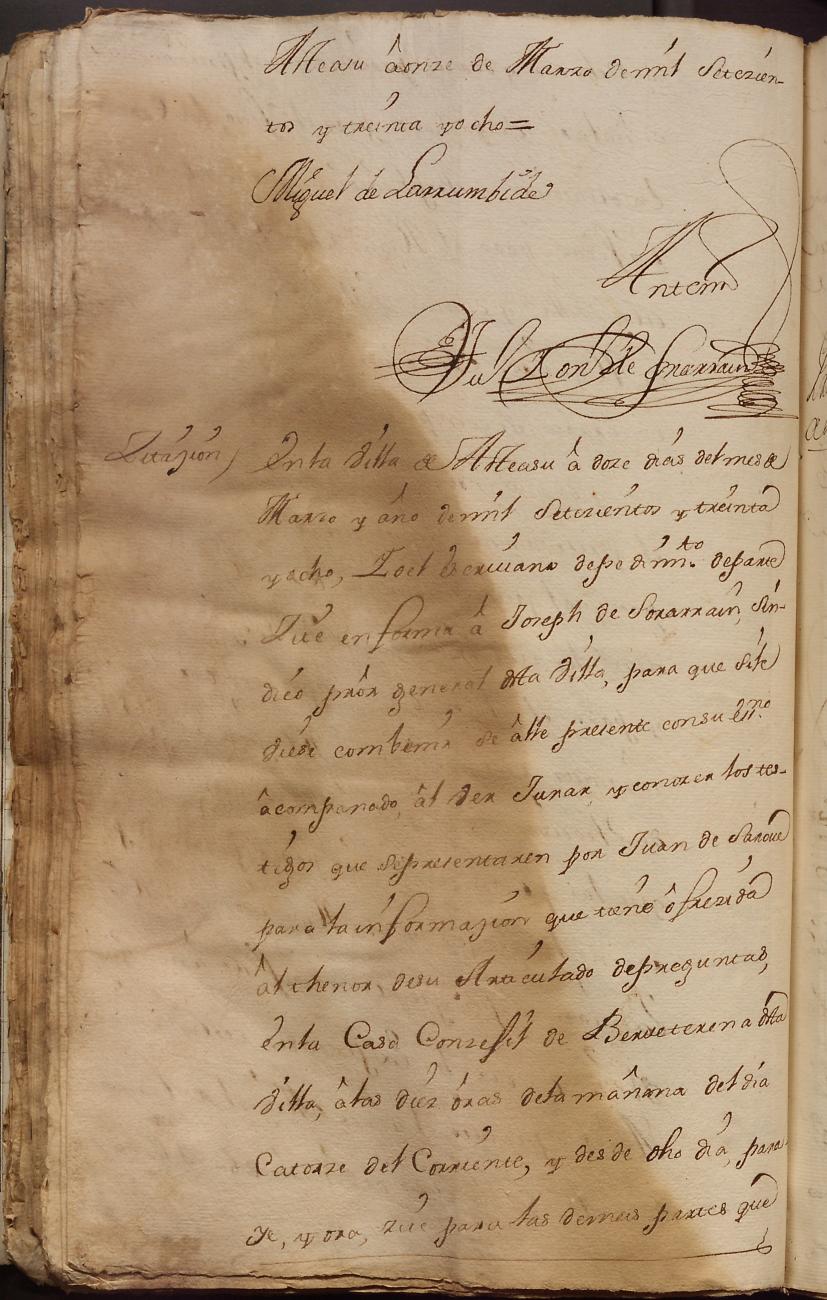 Atteasu â onze de Marzo de mil Setezien-
tos y treinta y ocho=
Miguel de Larrumbide
Antemi
de Sorarrain
Zitazion) En la Villa de Atteasu â doze dias del mes de
Marzo y año de mil Setezientos y treinta
y ocho, Yo el escriuano de pedimto. de parte
Zite en forma â Joseph de Sorarrain, Sin-
dico prôr general dha Villa, para que si le
diese combenir se âlle presente con su essno.
âcompañado, âl Ver Jurar, y conozer los tes-
tigos que se presentaren por Juan de Saroue
para la informazion que tiene ôfrezida
âl thenor de su Articulado de preguntas,
en la Casa Conzejil de Berreterena dha
Villa, â las diez ôras de la mañana del dia
Catorze del Corriente, y desde dho dia, para-
je, y ora, zite para las demas partes que